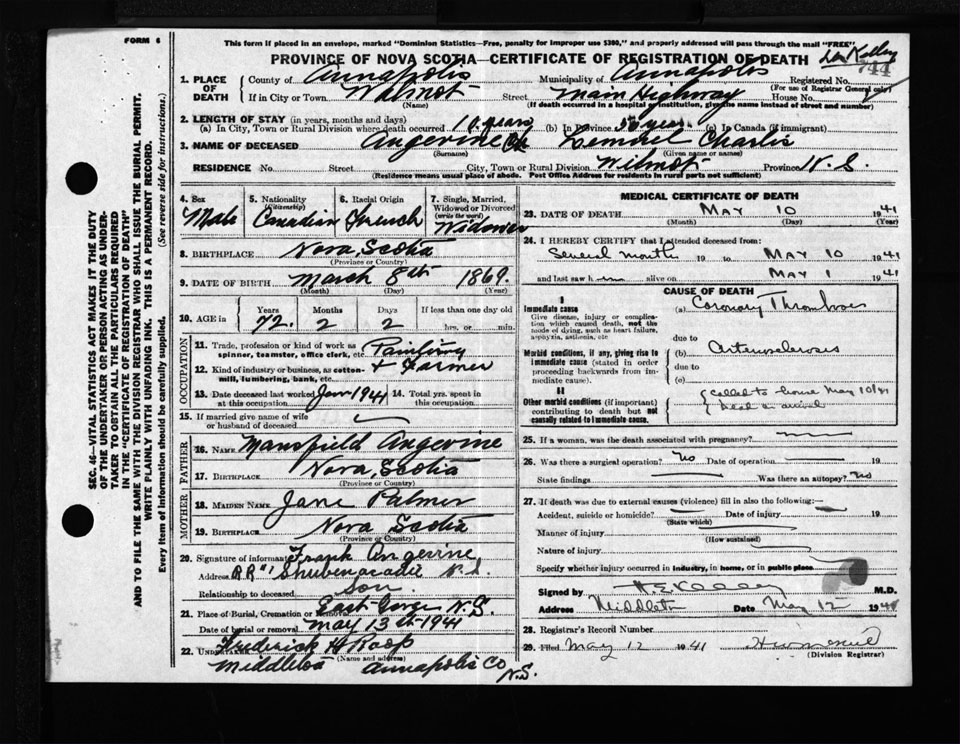 FORM 6
This form if placed in an envelope, marked "Dominion Statistics—Free, penalty for improper use $300," and properly addressed will pass through the mail "FREE"
PROVINCE OF NOVA SCOTIA—CERTIFICATE OF REGISTRATION OF DEATH
Kelley
744
1. PLACE OF DEATH
County of Annapolis Municipality of Annapolis Registered No.
(For use of Registrar General only)
If in City or Town Wilmot Street Main Highway House No.
(Name) (If death occurred in a hospital or institution, give the name instead of street and number)
2. LENGTH OF STAY (in years, months and days)
(a) In City, Town or Rural Division where death occurred 10 years (b) In Province years (c) In Canada (if immigrant)
3. NAME OF DECEASED Angevine Lemuel Charles
(Surname) (Given name or names)
RESIDENCE No. Street City, Town or Rural Division Wilmot Province N.S.
(Residence means usual place of abode. Post Office Address for residents in rural parts not sufficient)
4. Sex Male
5. Nationality (Citizenship) Canadian
6. Racial Origin French
7. Single, Married, Widowed or Divorced (write the word) Widower
8. BIRTHPLACE Nova Scotia
(Province or Country)
9. DATE OF BIRTH March 8th 1869
(Month) (Day) (Year)
10. AGE in Years Months Days If less than one day old
72 2 2 hrs. or min.
OCCUPATION
11. Trade, profession or kind of work as spinner, teamster, office clerk, etc. Painting
12. Kind of industry or business, as cotton-mill, lumbering, bank, etc. + Farmer
13. Date deceased last worked at this occupation Jan 1941 14. Total yrs. spent in this occupation
15. If married give name of wife or husband of deceased
FATHER
16. NAME Mansfield Angevine
17. BIRTHPLACE Nova Scotia
(Province or Country)
MOTHER
18. MAIDEN NAME Jane Palmer
19. BIRTHPLACE Nova Scotia
(Province or Country)
20. Signature of informant Frank Angevine
Address R R #1 Shubenacadie N.S.
Relationship to deceased Son
21. Place of Burial, Cremation or Removal East Gore N.S.
Date of burial or removal May 13th 1941
22. Undertaker Frederick H Roop
(Name and address)
Middleton Annapolis Co N.S.
MEDICAL CERTIFICATE OF DEATH
23. DATE OF DEATH May 10 1941
(Month) (Day) (Year)
24. I HEREBY CERTIFY that I attended deceased from:
Several months 19 to May 10 1941
and last saw h im alive on May 1 1941
CAUSE OF DEATH
I
Immediate cause
Give disease, injury or complication which caused death, not the mode of dying, such as heart failure, asphyxia, asthenia, etc
(a) Coronary Thrombosis
due to
Morbid conditions, if any, giving rise to immediate cause (stated in order proceeding backwards from immediate cause).
(b) Arteriosclerosis
due to
(c)
II
Other morbid conditions (if important) contributing to death but not causally related to immediate cause.
Called to house May 10/41
Dead on arrival
25. If a woman, was the death associated with pregnancy?
26. Was there a surgical operation? No Date of operation 19
State findings Was there an autopsy? No
27. If death was due to external causes (violence) fill in also the following:—
Accident, suicide or homicide? Date of injury 19
(State which)
Manner of injury
(How sustained)
Nature of injury
Specify whether injury occurred in industry, in home, or in public place
Signed by Kelley M.D.
Address Middleton Date May 12 1941
28. Registrar's Record Number
29. Filed May 12 1941
(Division Registrar)
SEC. 46—VITAL STATISTICS ACT MAKES IT THE DUTY
OF THE UNDERTAKER OR PERSON ACTING AS UNDER-
TAKER TO OBTAIN ALL THE PARTICULARS REQUIRED
IN THE "CERTIFICATE OF REGISTRATION OF DEATH"
AND TO FILE THE SAME WITH THE DIVISION REGISTRAR WHO SHALL ISSUE THE BURIAL PERMIT.
WRITE PLAINLY WITH UNFADING INK. THIS IS A PERMANENT RECORD.
Every item of information should be carefully supplied. (See reverse side for instructions.)